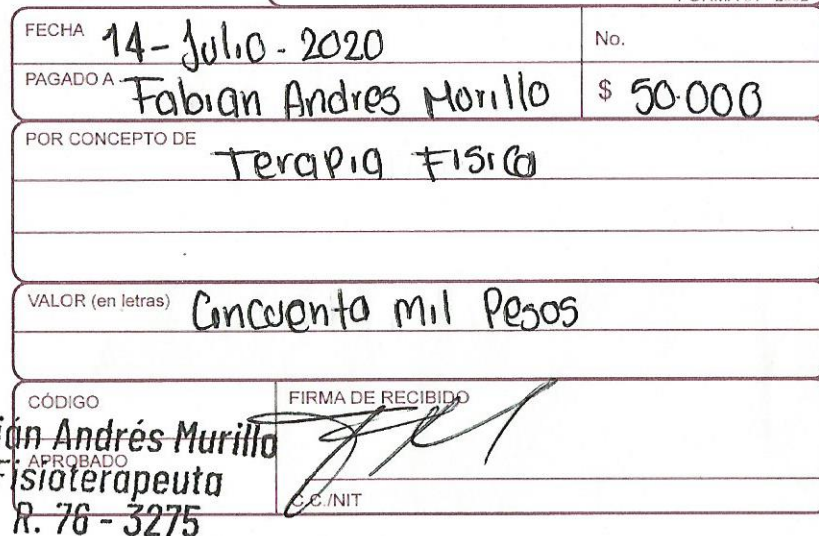 FECHA 14-Julio-2020 No.
PAGADO A Fabian Andres Morillo $ 50.000
POR CONCEPTO DE Terapia Fisica
VALOR (en letras) Cincuenta mil Pesos
CÓDIGO FIRMA DE RECIBIDO
ián Andrés Murillo
APROBADO
Fisioterapeuta
C.C./NIT
R. 76 - 3275